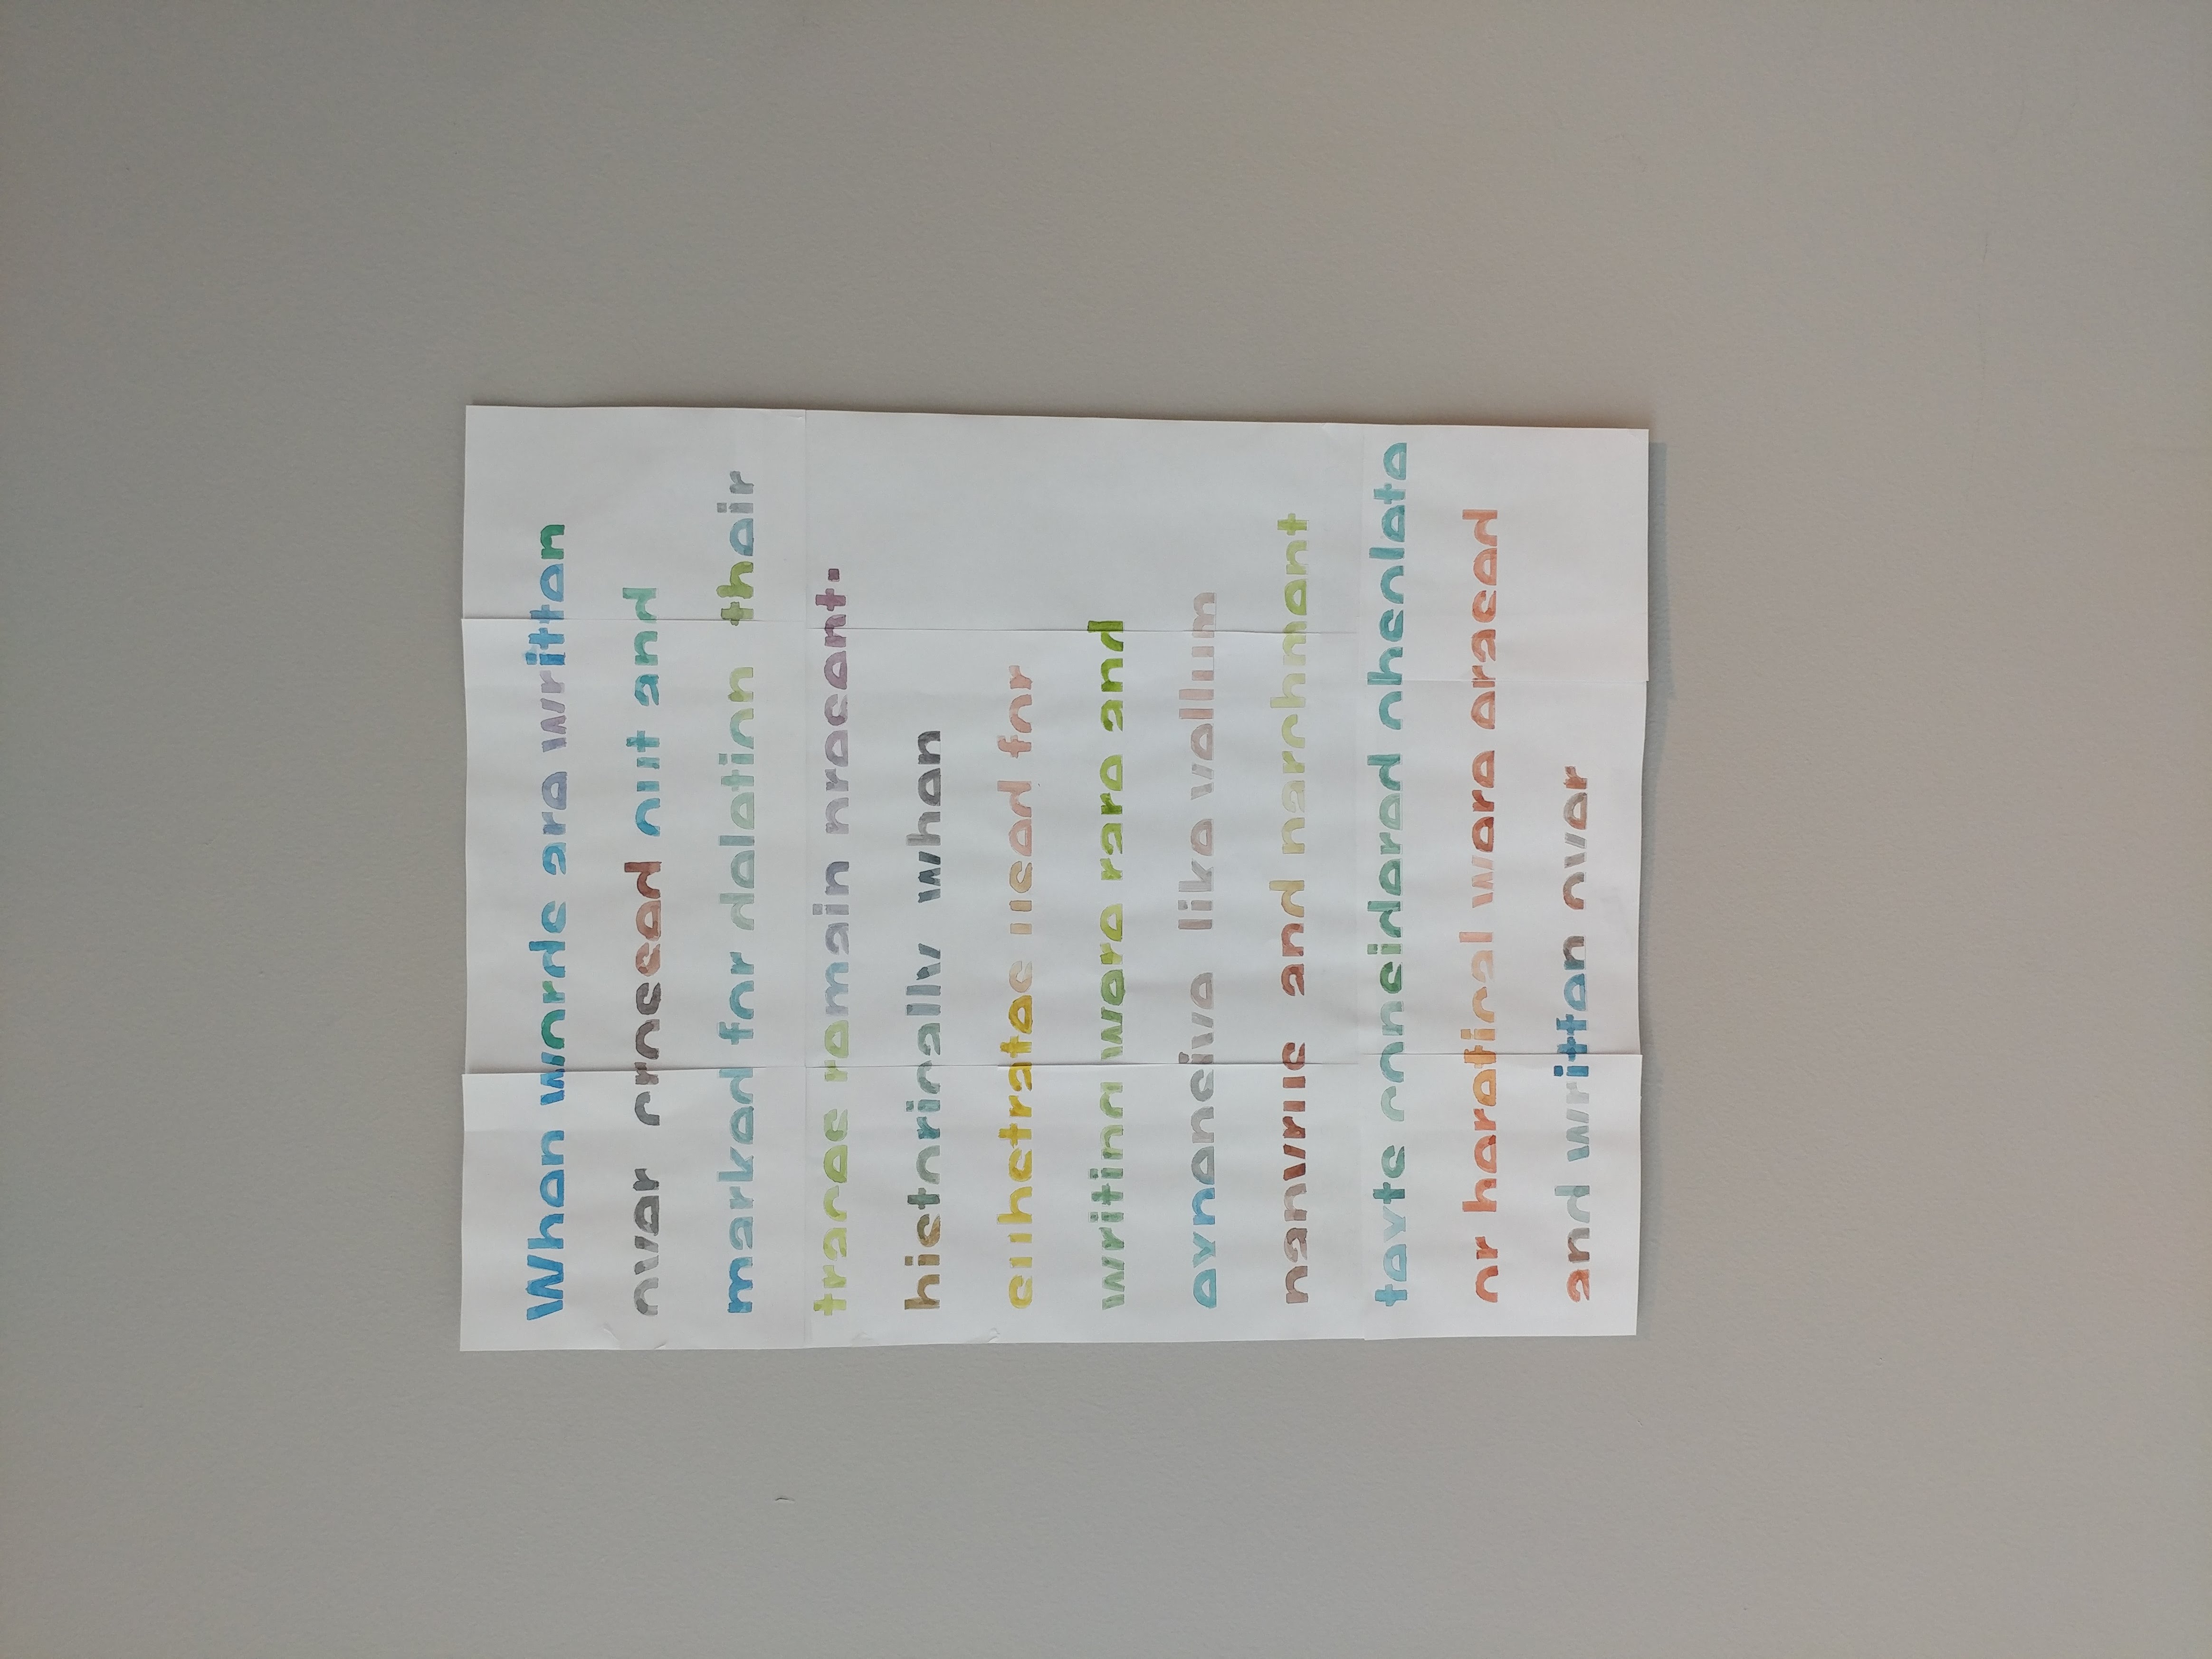 When words are written
over crossed out and
marked for deletion their
traces remain present.
historically when
substrates used for
writing were rare and
expensive like vellum
papyrus and parchment
texts considered obsolete
or heretical were erased
and written over